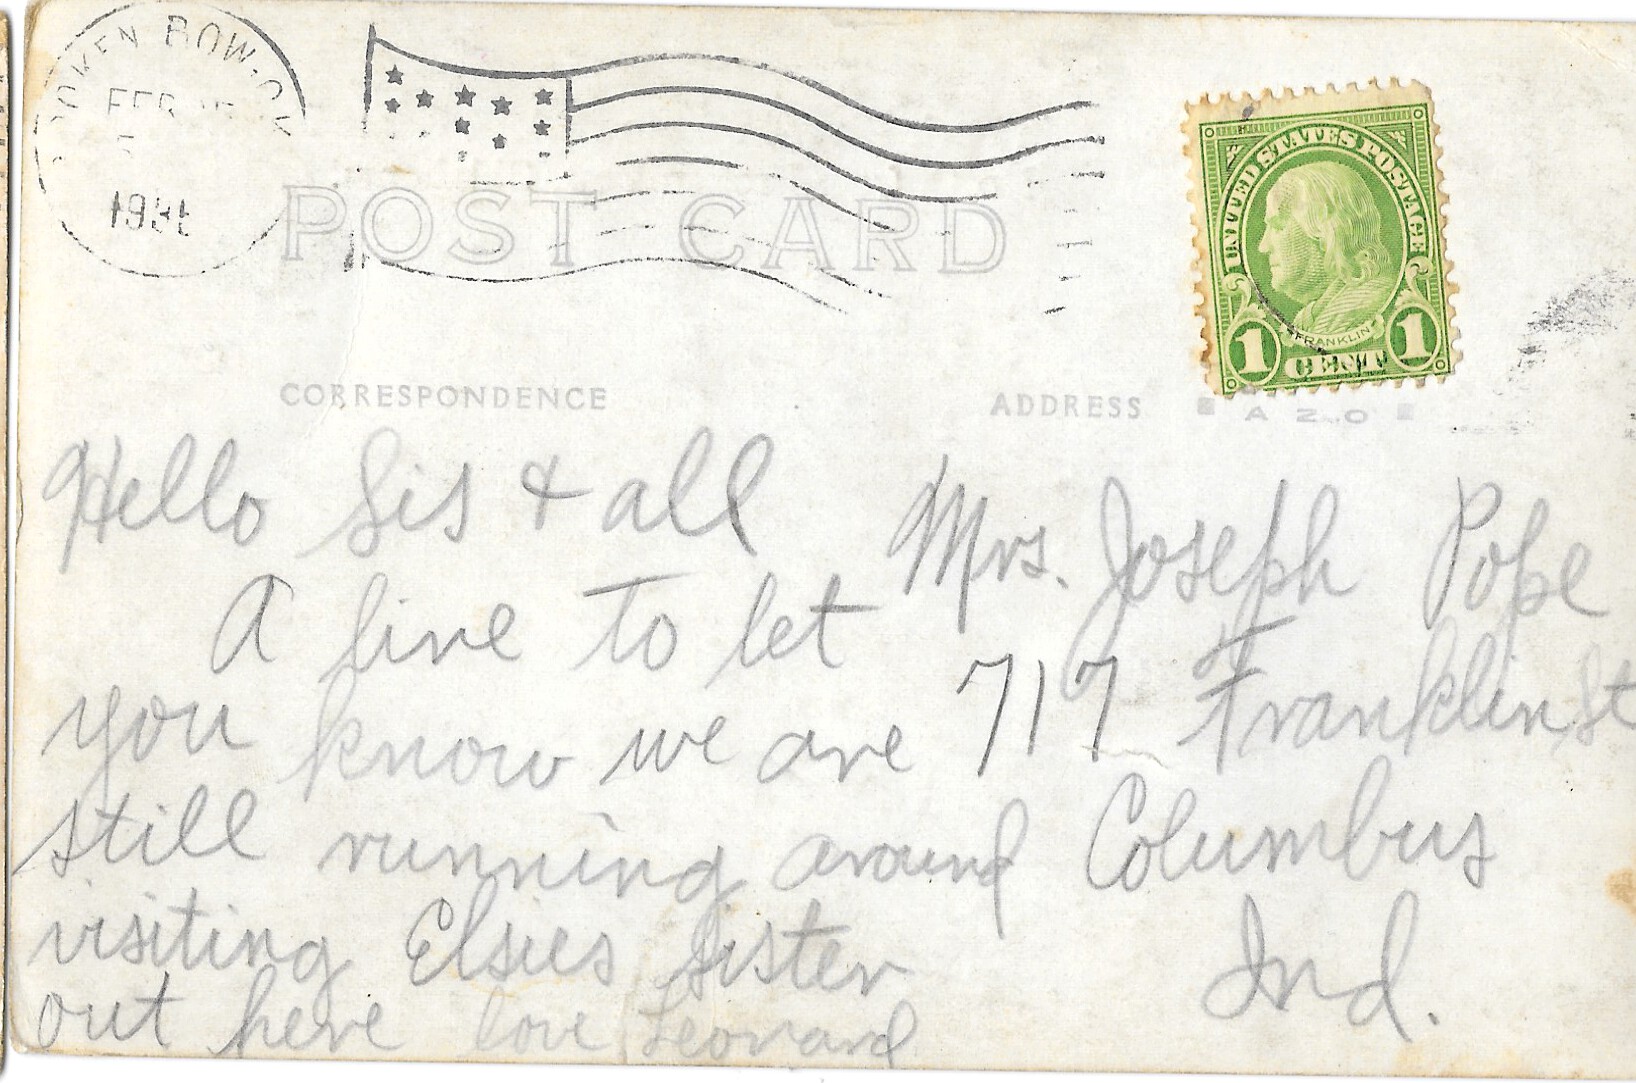 BROKEN BOW, OK
FEB
POST CARD
UNITED STATES POSTAGE
FRANKLIN
1 CENT 1
CORRESPONDENCE
ADDRESS
AZO
Hello Sis & all
A line to let
you know we are
still running around
visiting Elsies sister
out here love Leonard
Mrs. Joseph Pope
717 Franklin St
Columbus
Ind.